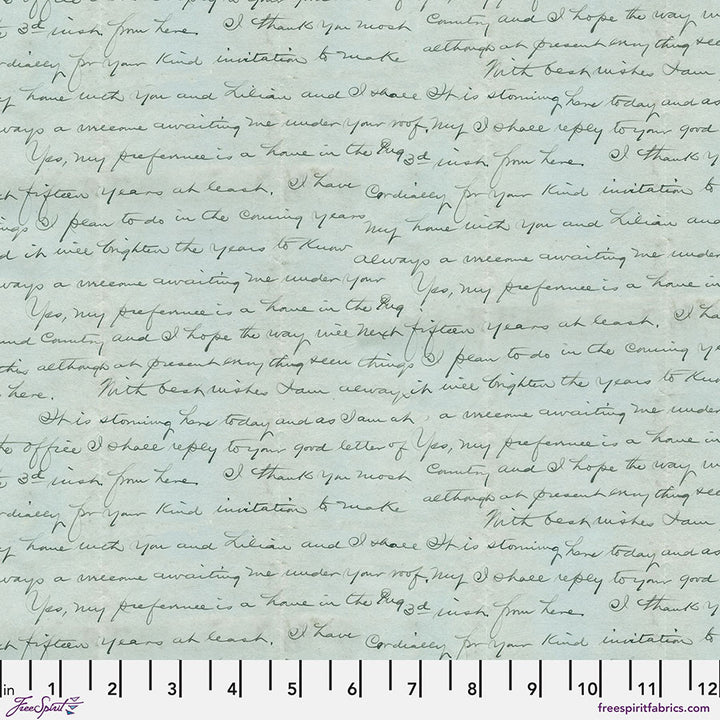 office I shall reply to your good letter of
3d inst from here. I thank you most Country and I hope the way will
although at present everything seem
ordially for your Kind invitation to make
With best wishes I am
home with you and Lilian and I shall It is storming here today and as
ways a welcome awaiting me under your roof. My I shall reply to your good
Yes, my preference is a home in the 3d inst from here. I thank y
fifteen years at least. I have Cordially for your Kind invitation to
ings I plan to do in the coming years
my home with you and Lilian and
d it will brighten the years to Know
always a welcome awaiting me under
ways a welcome awaiting me under your Yes, my preference is a home in
Yes, my preference is a home in the
and Country and I hope the way will next fifteen years at least. I ha
this although at present everything seem things I plan to do in the coming ye
here. With best wishes I am always, it will brighten the years to Know
It is storming here today and as I am at a welcome awaiting me under
the office I shall reply to your good letter of Yes, my preference is a home in
3d inst from here. I thank you most Country and I hope the way w
although at present everything see
ordially for your Kind invitation to make
With best wishes I am
y home with you and Lilian and I shall It is storming here today and as
ways a welcome awaiting me under your roof. My I shall reply to your good
Yes, my preference is a home in the 3d inst from here. I thank y
fifteen years at least. I have Cordially for your Kind invitation to
in 1 2 3 4 5 6 7 8 9 10 11 12
FreeSpirit
freespiritfabrics.com